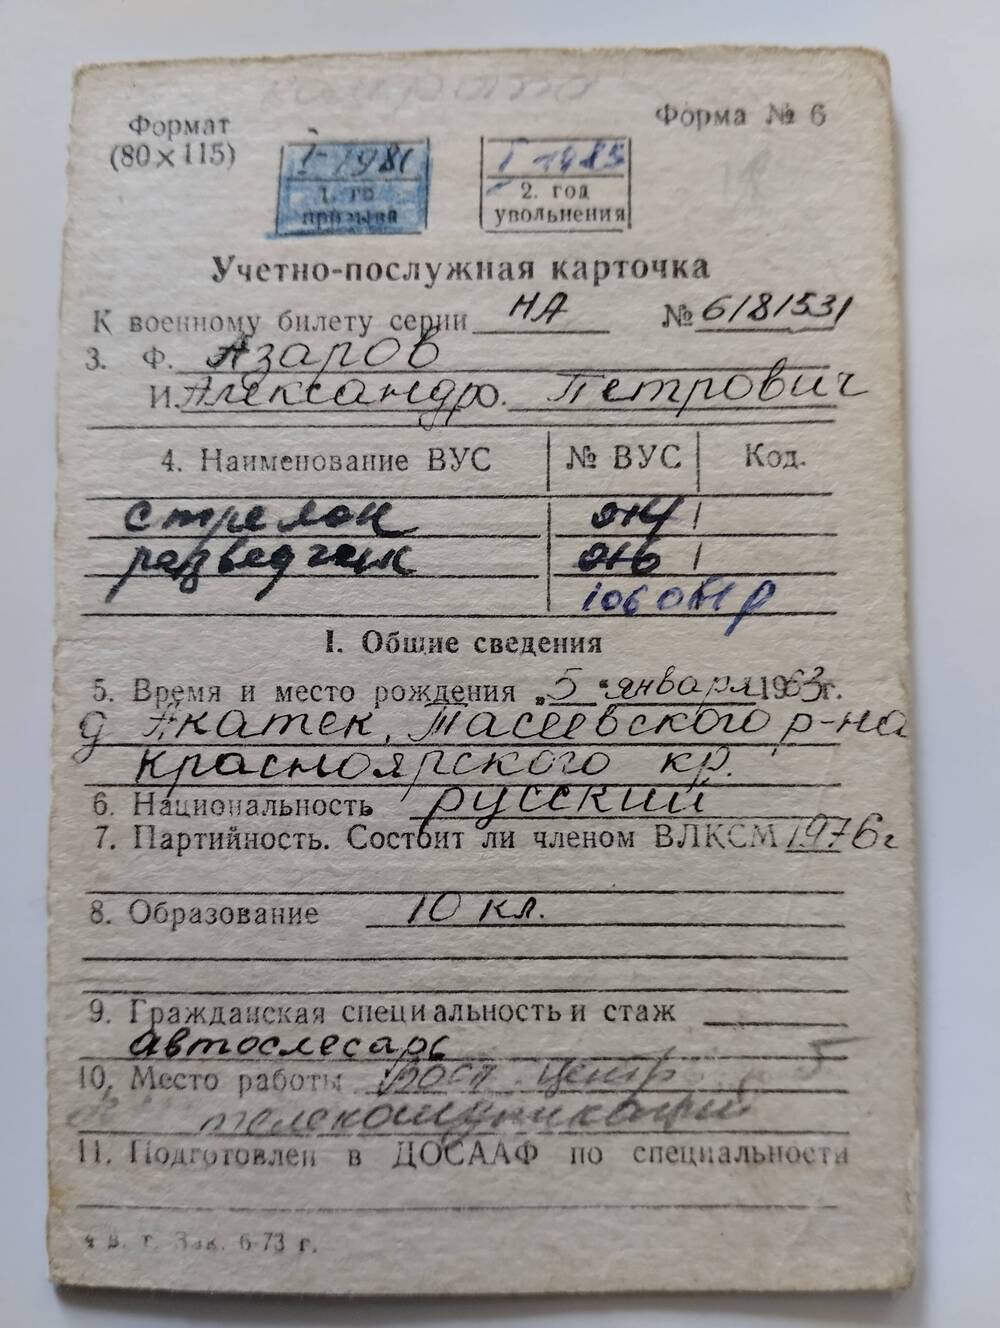 Формат
(80×115)
Форма № 6
I-1981
1. го
призыва
I-1985
2. год
увольнения
Учетно-послужная карточка
К военному билету серии НА № 6181531
3. Ф. Азаров
И. Александр О. Петрович
4. Наименование ВУС № ВУС Код.
стрелок
разведчик
106 0
I. Общие сведения
5. Время и место рождения „5“ января 1963 г.
д Акатек, Тасеевского р-на
Красноярского кр.
6. Национальность русский
7. Партийность. Состоит ли членом ВЛКСМ 1976 г
8. Образование 10 кл.
9. Гражданская специальность и стаж
автослесарь
10. Место работы Вост. центр
телекоммуникаций
11. Подготовлен в ДОСААФ по специальности
4 в. т. Зак. 6-73 г.